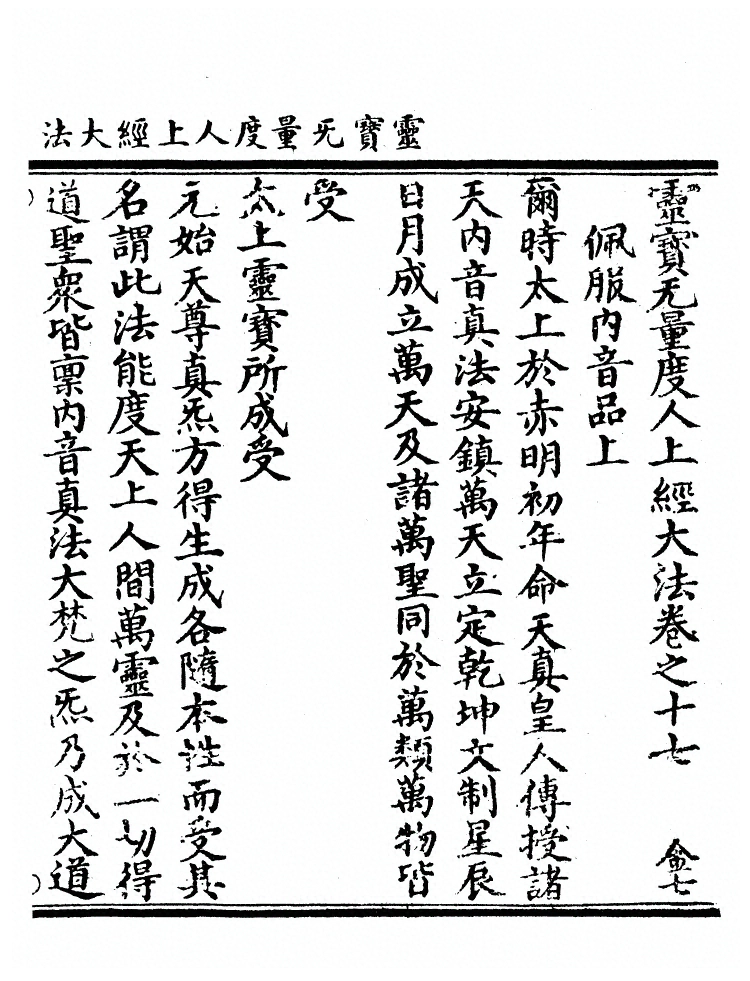 靈寶无量度人上經大法
靈寶无量度人上經大法卷之十七 𨤲七
佩服內音品上
爾時太上於赤明初年命天真皇人傳授諸
天內音真法安鎮萬天立定乾坤文制星辰
日月成立萬天及諸萬聖同於萬類萬物皆
受
太上靈寶所成受
元始天尊真炁方得生成各隨本性而受其
名謂此法能度天上人間萬靈及於一切得
道聖衆皆禀內音真法大梵之炁乃成大道